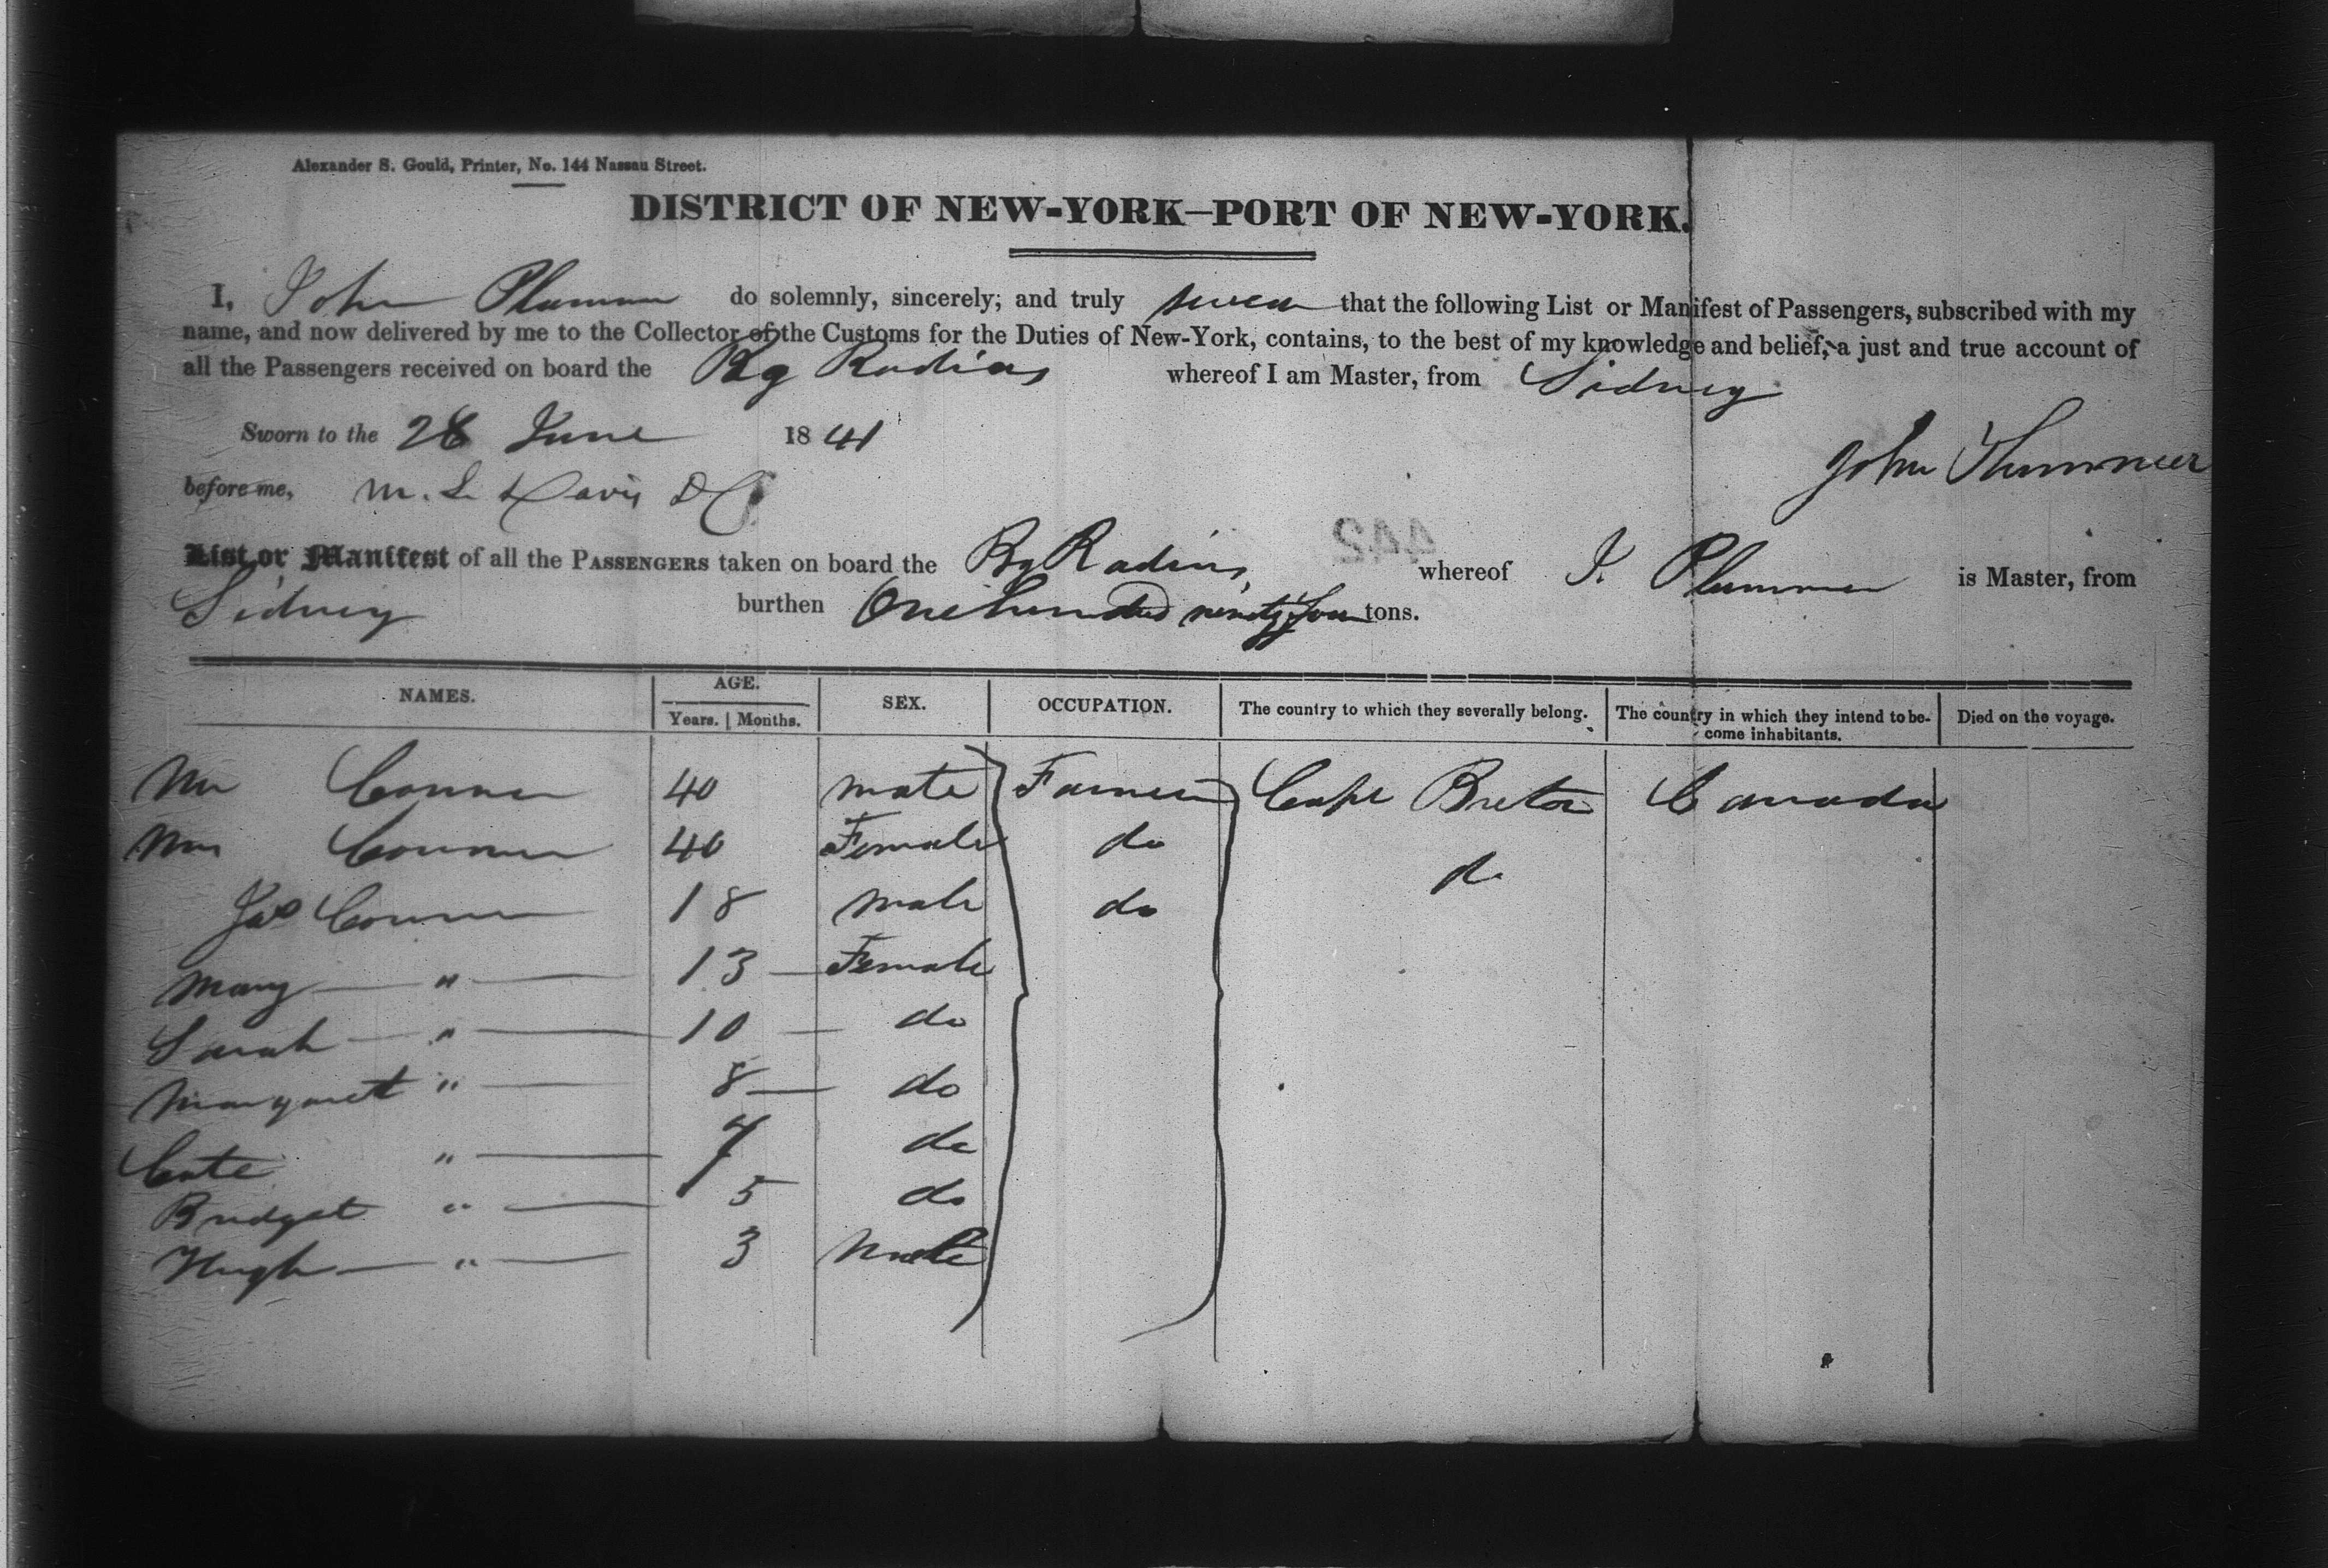 Alexander S. Gould, Printer, No. 144 Nassau Street.
DISTRICT OF NEW-YORK—PORT OF NEW-YORK.
I, John Plummer do solemnly, sincerely, and truly swear that the following List or Manifest of Passengers, subscribed with my
name, and now delivered by me to the Collector of the Customs for the Duties of New-York, contains, to the best of my knowledge and belief, a just and true account of
all the Passengers received on board the Bg Radius whereof I am Master, from Sidney
Sworn to the 28 June 1841
John Plummer
before me, M. L. Davis D C
442
List or Manifest of all the PASSENGERS taken on board the Bg Radius, whereof J. Plummer is Master, from
Sidney burthen One hundred ninety four tons.
NAMES. AGE. Years. Months. SEX. OCCUPATION. The country to which they severally belong. The country in which they intend to become inhabitants. Died on the voyage.
Mr Conner 40 male Farmer Cape Breton Canada
Mrs Conner 40 Female do do
Jas Conner 18 male do
Mary " 13 Female
Sarah " 10 do
Margaret " 8 do
Cate " 7 do
Bridget " 5 do
Hugh " 3 Male